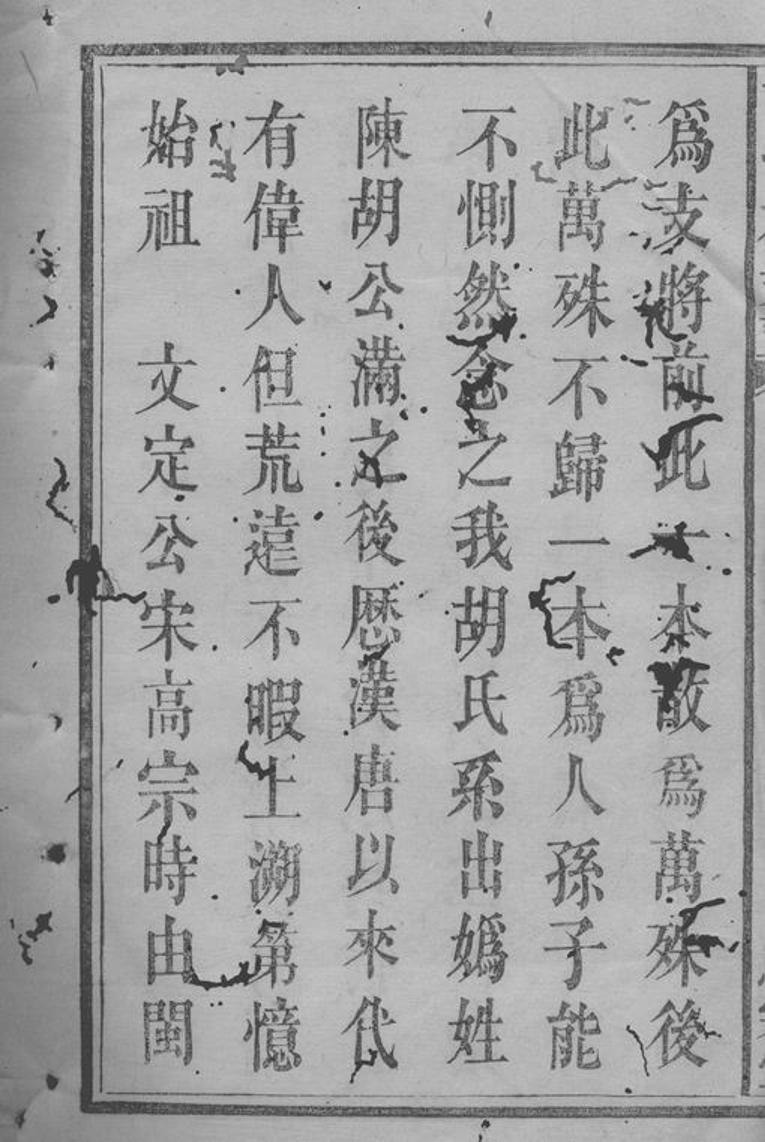 爲支將前此一本散爲萬殊後
此萬殊不歸一本爲人孫子能
不惻然念之我胡氏系出嬀姓
陳胡公滿之後歷漢唐以來代
有偉人但荒遠不暇上溯第憶
始祖　文定公宋高宗時由閩